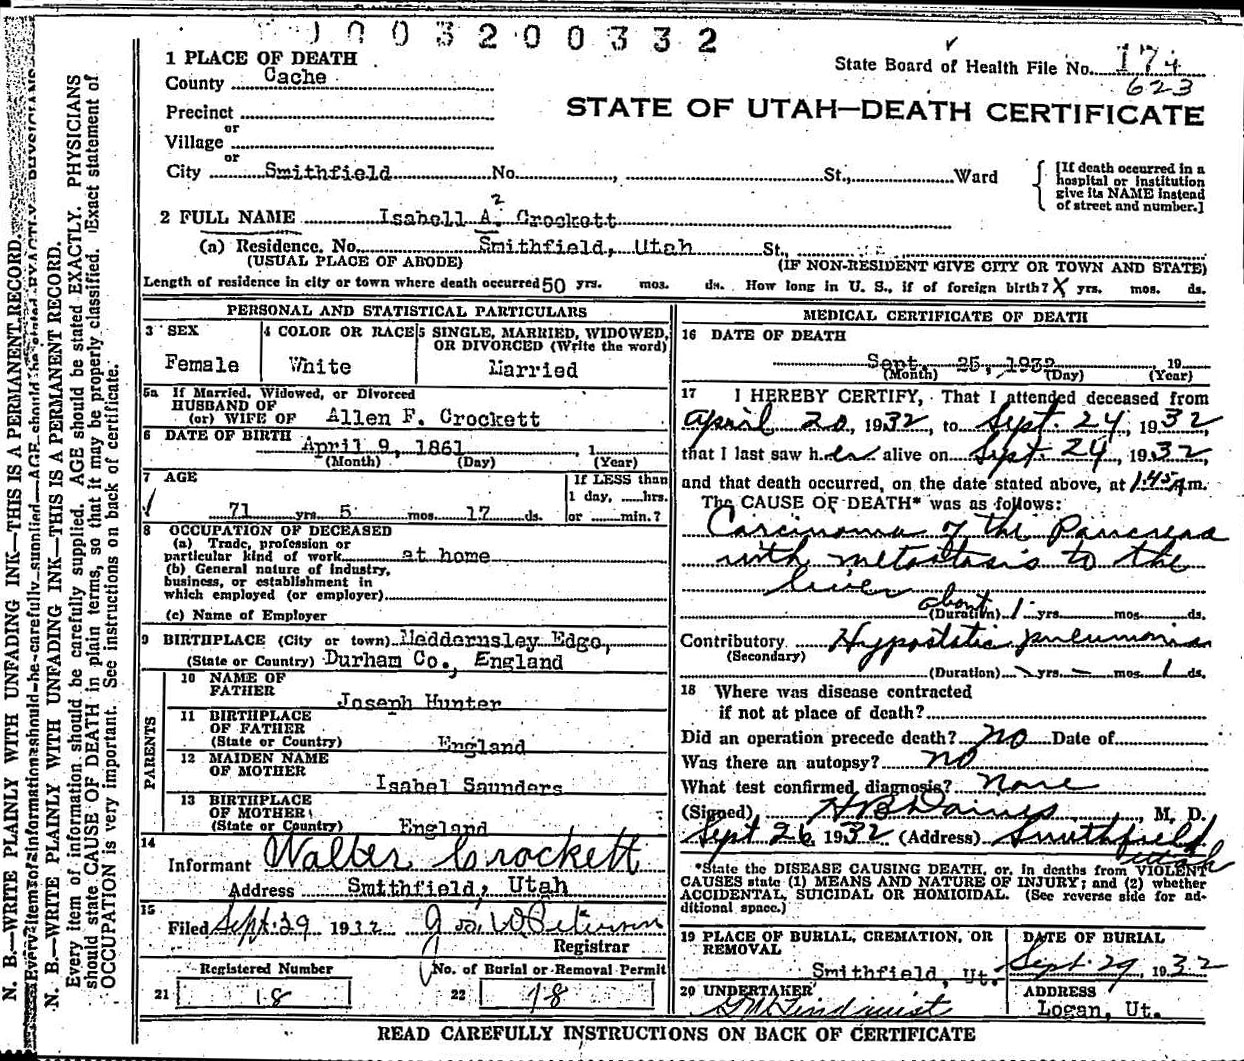 003200332
1 PLACE OF DEATH
County Cache
State Board of Health File No. 174
623
Precinct
STATE OF UTAH—DEATH CERTIFICATE
or
Village
or
City Smithfield No. , St., Ward
[If death occurred in a hospital or institution give its NAME instead of street and number.]
2
2 FULL NAME Isabell A. Crockett
(a) Residence. No. Smithfield, Utah St.,
(USUAL PLACE OF ABODE) (IF NON-RESIDENT GIVE CITY OR TOWN AND STATE)
Length of residence in city or town where death occurred 50 yrs. mos. ds. How long in U. S., if of foreign birth? X yrs. mos. ds.
PERSONAL AND STATISTICAL PARTICULARS
3 SEX
Female
4 COLOR OR RACE
White
5 SINGLE, MARRIED, WIDOWED,
OR DIVORCED (Write the word)
Married
5a If Married, Widowed, or Divorced
HUSBAND OF
(or) WIFE OF Allen F. Crockett
6 DATE OF BIRTH April 9, 1861, 1
(Month) (Day) (Year)
7 AGE
71 yrs. 5 mos. 17 ds.
If LESS than
1 day, hrs.
or min.?
8 OCCUPATION OF DECEASED
(a) Trade, profession or
particular kind of work at home
(b) General nature of industry,
business, or establishment in
which employed (or employer)
(c) Name of Employer
9 BIRTHPLACE (City or town) Heddernsley Edge,
(State or Country) Durham Co., England
PARENTS
10 NAME OF
FATHER
Joseph Hunter
11 BIRTHPLACE
OF FATHER
(State or Country) England
12 MAIDEN NAME
OF MOTHER
Isabel Saunders
13 BIRTHPLACE
OF MOTHER
(State or Country) England
14
Informant Walter Crockett
Address Smithfield, Utah
15
Filed Sept. 29 1932
Registrar
Registered Number No. of Burial or Removal Permit
21 18 22 18
MEDICAL CERTIFICATE OF DEATH
16 DATE OF DEATH
Sept. 25, 1932 19
(Month) (Day) (Year)
17 I HEREBY CERTIFY, That I attended deceased from
April 20, 1932, to Sept. 24, 1932,
that I last saw her alive on Sept. 24, 1932,
and that death occurred, on the date stated above, at 1:45 A.m.
The CAUSE OF DEATH* was as follows:
Carcinoma of the Pancreas
with metastasis to the
liver
about
(Duration) 1 yrs. mos. ds.
Contributory Hypostatic pneumonia
(Secondary)
(Duration) yrs. — mos. 1 ds.
18 Where was disease contracted
if not at place of death?
Did an operation precede death? no Date of
Was there an autopsy? no
What test confirmed diagnosis? None
(Signed) H B Daines, M. D.
Sept 26, 1932 (Address) Smithfield
Utah
*State the DISEASE CAUSING DEATH, or, in deaths from VIOLENT
CAUSES state (1) MEANS AND NATURE OF INJURY; and (2) whether
ACCIDENTAL, SUICIDAL OR HOMICIDAL. (See reverse side for ad-
ditional space.)
19 PLACE OF BURIAL, CREMATION, OR
REMOVAL
Smithfield, Ut.
DATE OF BURIAL
Sept. 29, 1932
20 UNDERTAKER
Lindquist
ADDRESS
Logan, Ut.
READ CAREFULLY INSTRUCTIONS ON BACK OF CERTIFICATE
N. B.—WRITE PLAINLY WITH UNFADING INK—THIS IS A PERMANENT RECORD.
N. B.—WRITE PLAINLY WITH UNFADING INK—THIS IS A PERMANENT RECORD.
Every item of information should be carefully supplied. AGE should be stated EXACTLY. PHYSICIANS
should state CAUSE OF DEATH in plain terms, so that it may be properly classified. Exact statement of
OCCUPATION is very important. See instructions on back of certificate.